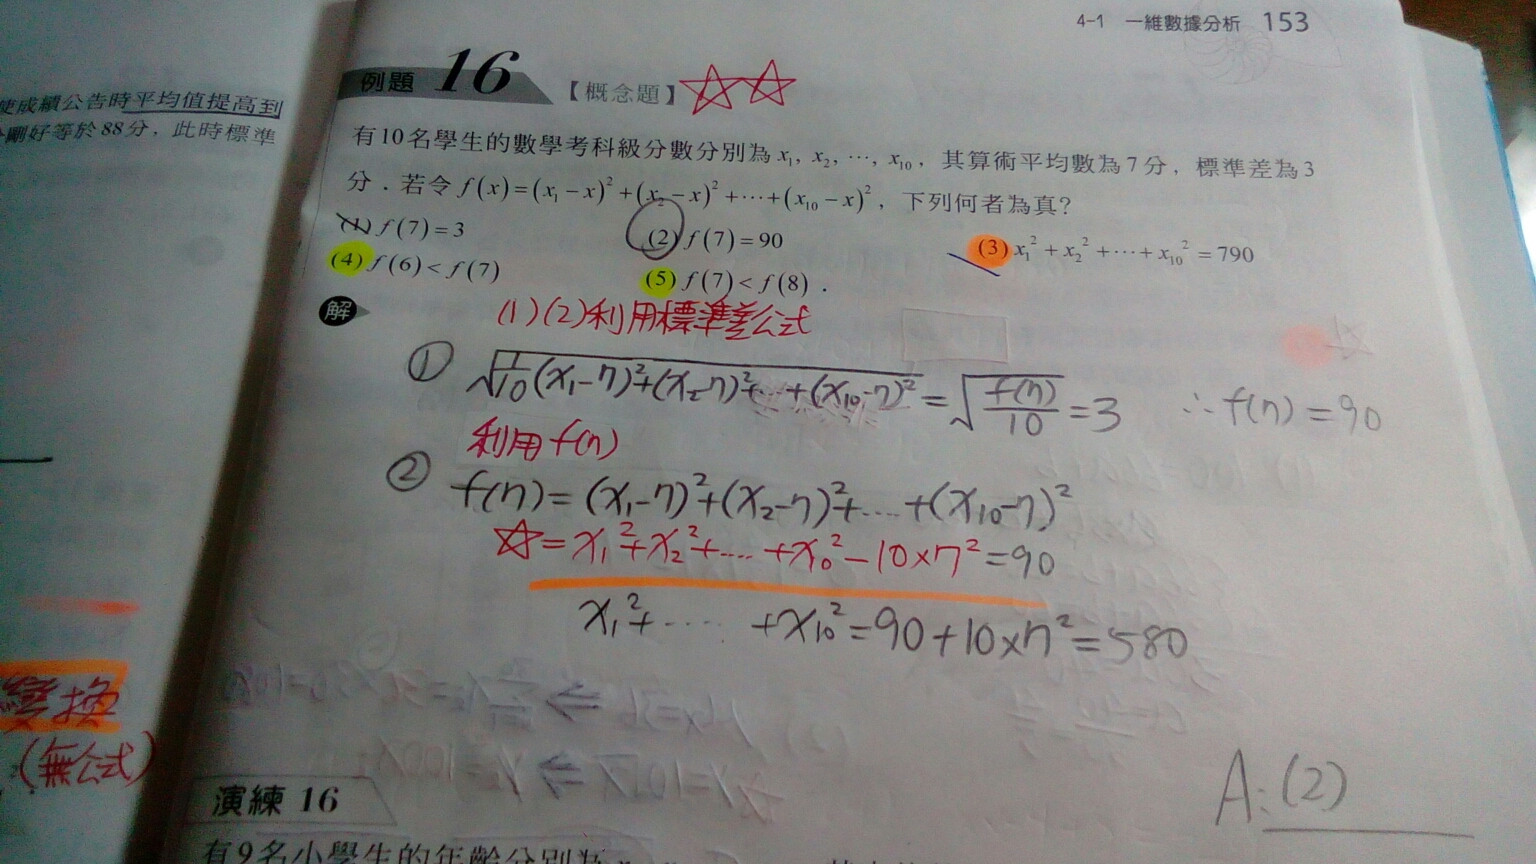 4-1 一維數據分析 153
使成績公告時平均值提高到
剛好等於88分，此時標準
例題 16 【概念題】
有10名學生的數學考科級分數分別為 x₁, x₂, ⋯, x₁₀，其算術平均數為7分，標準差為3
分．若令 f(x)=(x₁−x)²+(x₂−x)²+⋯+(x₁₀−x)²，下列何者為真?
(1) f(7)=3 (2) f(7)=90 (3) x₁²+x₂²+⋯+x₁₀²=790
(4) f(6)<f(7) (5) f(7)<f(8)．
解
(1)(2)利用標準差公式
① √(1/10(x₁−7)²+(x₂−7)²+⋯+(x₁₀−7)²) = √(f(7)/10) = 3 ∴f(7)=90
利用f(7)
② f(7)=(x₁−7)²+(x₂−7)²+⋯+(x₁₀−7)²
☆=x₁²+x₂²+⋯+x₀²−10×7²=90
x₁²+⋯+x₁₀²=90+10×7²=580
變換
(無公式)
A:(2)
演練 16
有9名小學生的年齡分別為